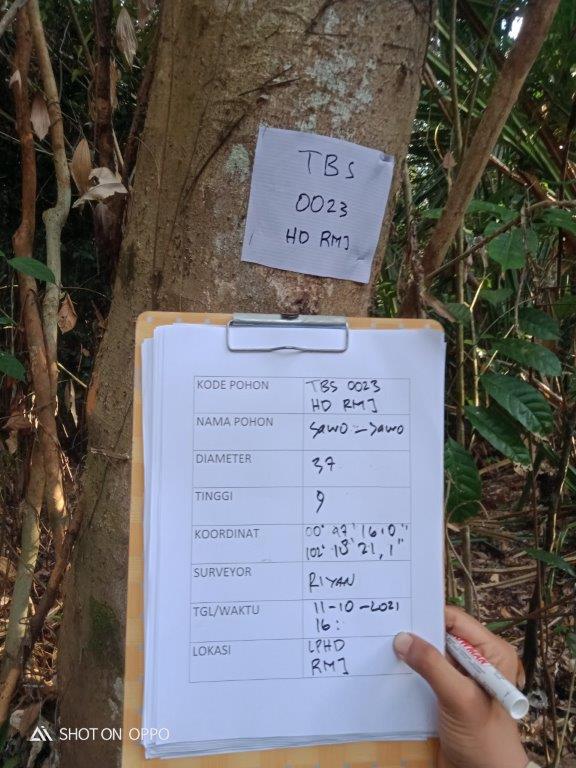 TBS
0023
HD RMJ
KODE POHON TBS 0023
HD RMJ
NAMA POHON SAWO - SAWO
DIAMETER 37
TINGGI 9
KOORDINAT 00° 47' 16.0"
102° 18' 21,1"
SURVEYOR RIYAN
TGL/WAKTU 11-10-2021
16:
LOKASI LPHD
RMJ
SHOT ON OPPO